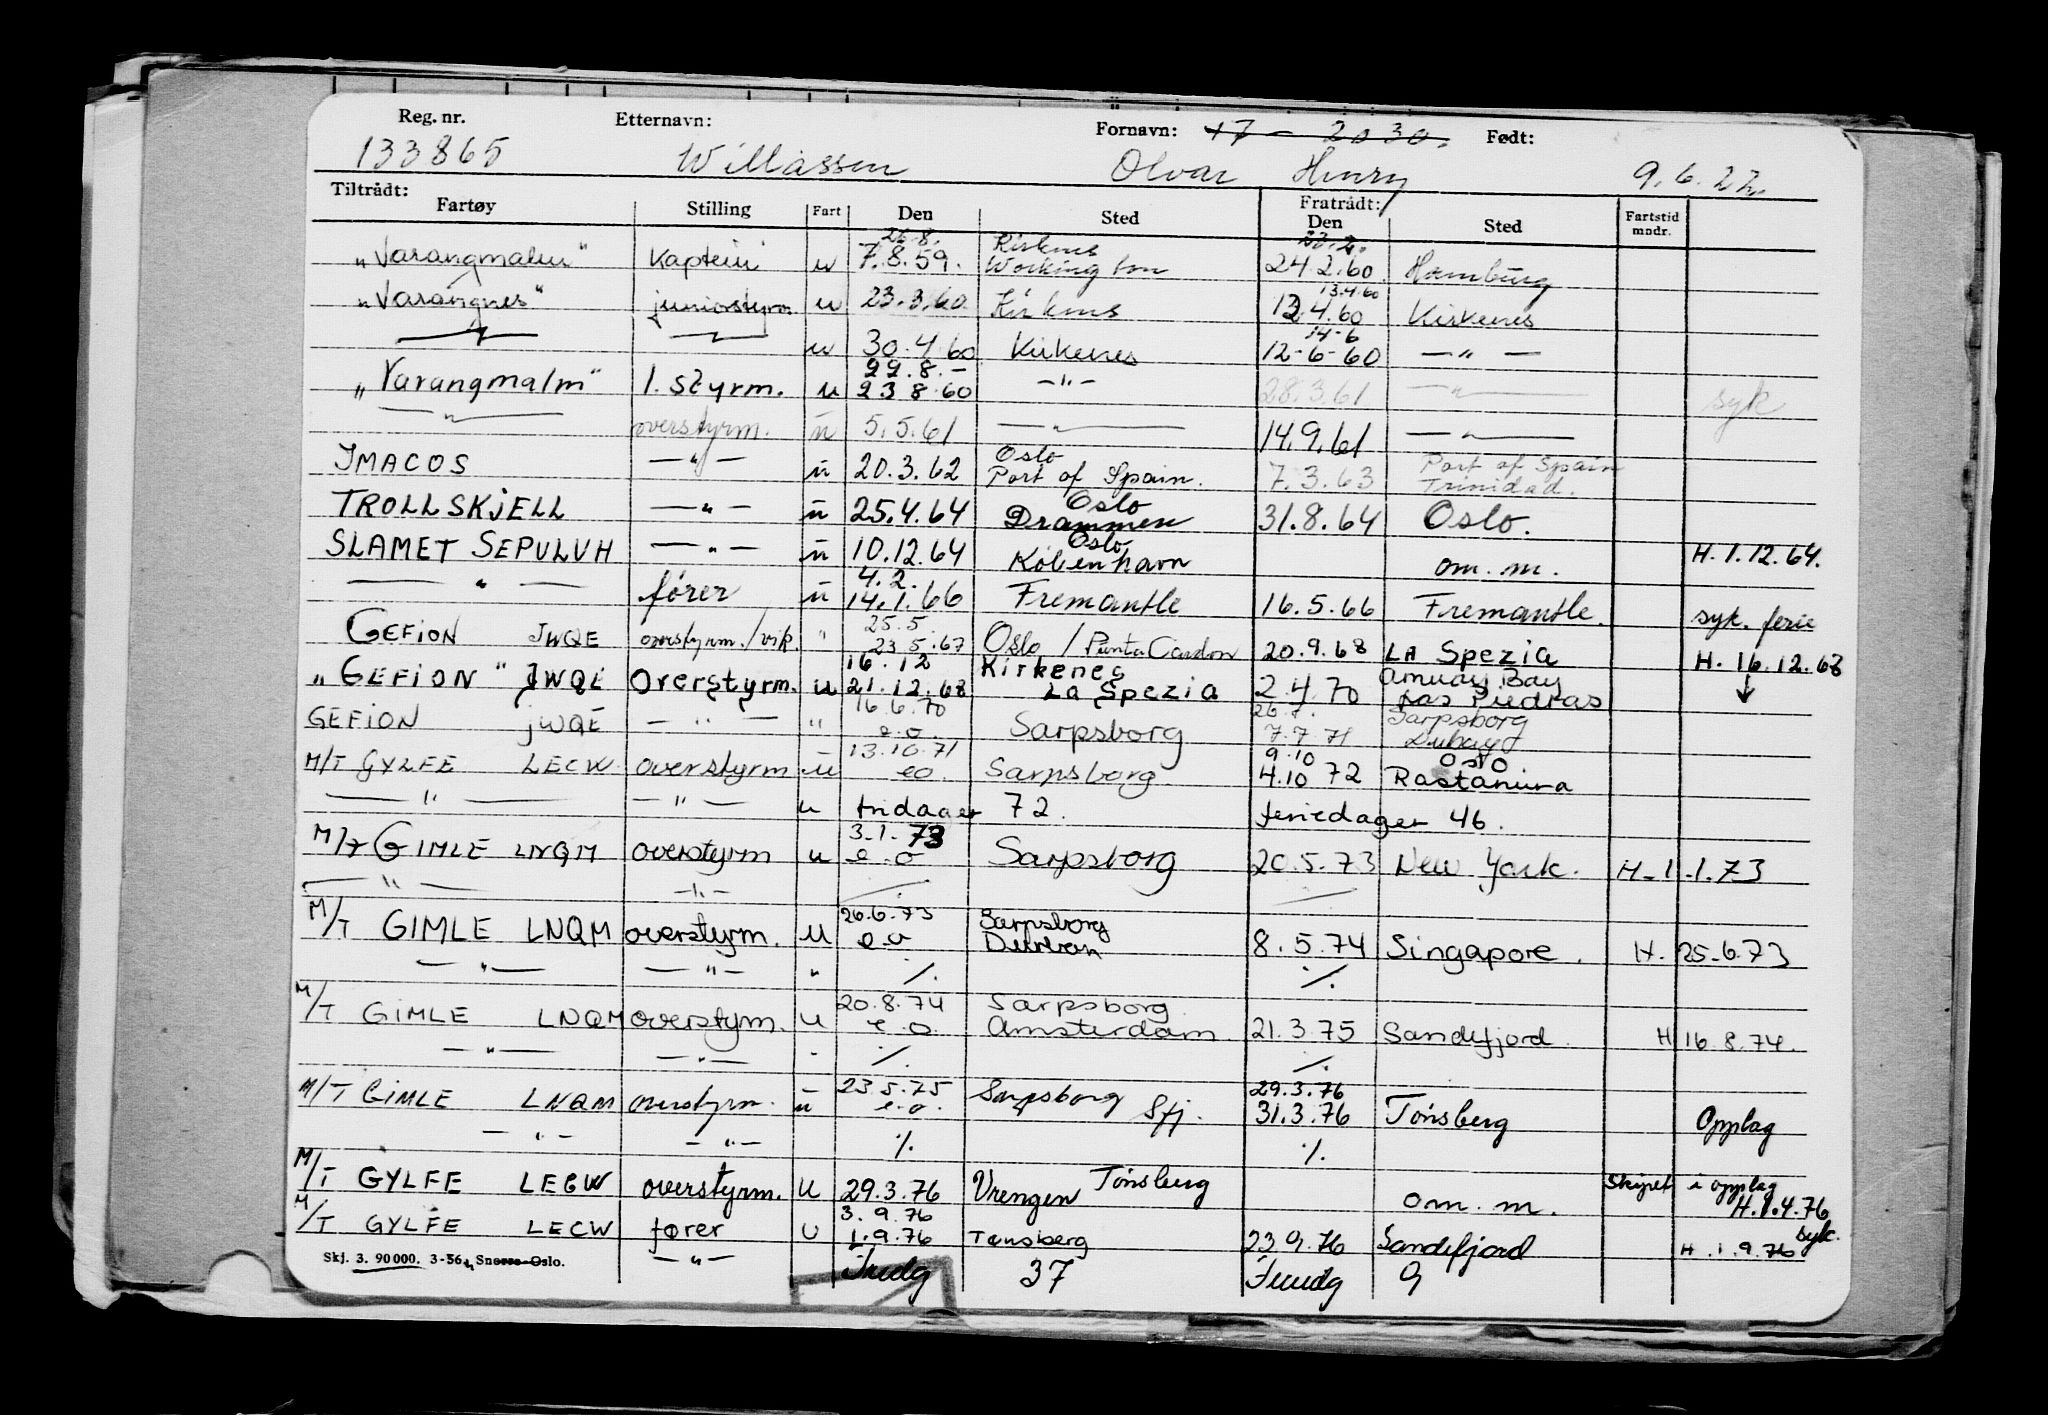 Reg. nr. Etternavn: Fornavn: 17 - 2030. Født:
133865 Willassen Olvar Henry 9.6.22.
Tiltrådt: Fratrådt:
Fartøy Stilling Fart Den Sted Den Sted Fartstid mndr.
26.8. Kirknes 23.2.
"Varangmalm" Kaptein u 7.8.59. Workington 24.2.60 Hamburg
13.4.60
"Varangnes" juniorstyrm. u 23.3.60 Kirknes 12.4.60 Kirkenes
14-6
u 30.4.60 Kirkenes 12-6-60 — " —
22.8.-
"Varangmalm" 1. styrm. u 23 8.60 - " - 28.3.61 — " — syk
— " — overstyrm. u 5.5.61 — " — 14.9.61 — " —
Oslo Port of Spain
IMACOS — " — u 20.3.62 Port of Spain. 7.3.63 Trinidad.
Oslo
TROLLSKJELL — " — u 25.4.64 Drammen 31.8.64 Oslo.
Oslo
SLAMET SEPULUH — " — u 10.12.64 København om. m. H. 1.12.64.
4.2.
— " — fører u 14.1.66 Fremantle 16.5.66 Fremantle. syk. ferie
25.5
GEFION JWQE overstyrm./vik. " 23.5.67 Oslo / Punta Cardon 20.9.68 LA Spezia H. 16.12.68
16.12 Kirkenes Amuay Bay
"GEFION" JWQE Overstyrm. u 21.12.68 La Spezia 2.4.70 Las Piedras
16.6.70 26.7. Sarpsborg
GEFION JWQE — " — " e.o. Sarpsborg 7.7.71 Dubay
13.10.71 9.10 Oslo
M/T GYLFE LECW overstyrm u eo. Sarpsborg 4.10 72 Rastanura
— " — — " — u fridager 72. feriedager 46.
3.1.73
M/T GIMLE LNQM overstyrm u e.o Sarpsborg 20.5.73 New York. H. 1.1.73
— " — - " -
26.6.73 Sarpsborg
M/T GIMLE LNQM overstyrm. u e o Durban 8.5.74 Singapore. H. 25.6.73
— " — — " — " ./. ./.
20.8.74 Sarpsborg
M/T GIMLE LNQM overstym. u e.o. Amsterdam. 21.3.75 Sandefjord. H 16.8.74.
— " — — " — - ./. ./.
23.5.75 29.3.76
M/T GIMLE LNQM overstyrm. u e.o. Sarpsborg Sfj. 31.3.76 Tønsberg Opplag
— " — — " — ./. ./.
M/T GYLFE LECW overstyrm. u 29.3.76 Vrengen Tønsberg om. m. Skipet i opplag H.1.4.76
3.9.76 syk.
M/T GYLFE LECW fører u 1.9.76 Tønsberg 23 9.76 Sandefjord H. 1.9.76
— " — 37 9
Skj. 3. 90 000. 3-56. Oslo.